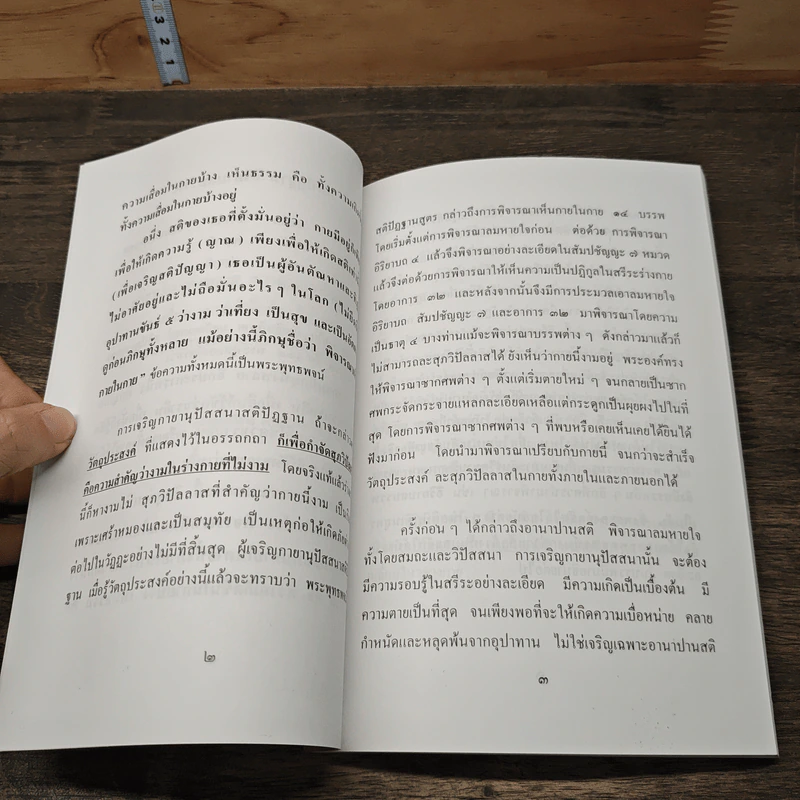 3
2
1
ความเสื่อมในกายบ้าง เห็นธรรม คือ ทั้งความเกิด
ทั้งความเสื่อมในกายบ้างอยู่
อนึ่ง สติของเธอที่ตั้งมั่นอยู่ว่า กายมีอยู่
เพื่อให้เกิดความรู้ (ญาณ) เพียงเพื่อให้เกิดสติ
(เพื่อเจริญสติปัญญา) เธอเป็นผู้อันตัณหาและ
ไม่อาศัยอยู่และไม่ถือมั่นอะไร ๆ ในโลก
อุปาทานขันธ์ ๕ ว่างาม ว่าเที่ยง เป็นสุข และเป็น
ดูก่อนภิกษุทั้งหลาย แม้อย่างนี้ภิกษุชื่อว่า พิจารณา
กายในกาย" ข้อความทั้งหมดนี้เป็นพระพุทธพจน์
การเจริญกายานุปัสสนาสติปัฏฐาน ถ้าจะกล่าว
วัตถุประสงค์ ที่แสดงไว้ในอรรถกถา ก็เพื่อกำจัดสุภวิปัลลาส
คือความสำคัญว่างามในร่างกายที่ไม่งาม โดยจริงแท้แล้ว
นี้ก็หางามไม่ สุภวิปัลลาสที่สำคัญว่ากายนี้งาม เป็น
เพราะเศร้าหมองและเป็นสมุทัย เป็นเหตุก่อให้เกิด
ต่อไปในวัฏฏะอย่างไม่มีที่สิ้นสุด ผู้เจริญกายานุปัสสนาสติปัฏ
ฐาน เมื่อรู้วัตถุประสงค์อย่างนี้แล้วจะทราบว่า พระพุทธ
๒
สติปัฏฐานสูตร กล่าวถึงการพิจารณาเห็นกายในกาย ๑๔ บรรพ
โดยเริ่มตั้งแต่การพิจารณาลมหายใจก่อน ต่อด้วย การพิจารณา
อิริยาบถ ๔ แล้วจึงพิจารณาอย่างละเอียดในสัมปชัญญะ ๗ หมวด
แล้วจึงต่อด้วยการพิจารณาให้เห็นความเป็นปฏิกูลในสรีระร่างกาย
โดยอาการ ๓๒ และหลังจากนั้นจึงมีการประมวลเอาลมหายใจ
อิริยาบถ สัมปชัญญะ ๗ และอาการ ๓๒ มาพิจารณาโดยความ
เป็นธาตุ ๔ บางท่านแม้จะพิจารณาบรรพต่าง ๆ ดังกล่าวมาแล้วก็
ไม่สามารถละสุภวิปัลลาสได้ ยังเห็นว่ากายนี้งามอยู่ พระองค์ทรง
ให้พิจารณาซากศพต่าง ๆ ตั้งแต่เริ่มตายใหม่ ๆ จนกลายเป็นซาก
ศพกระจัดกระจายแหลกละเอียดเหลือแต่กระดูกเป็นผุยผงไปในที่
สุด โดยการพิจารณาซากศพต่าง ๆ ที่พบหรือเคยเห็นเคยได้ยินได้
ฟังมาก่อน โดยนำมาพิจารณาเปรียบกับกายนี้ จนกว่าจะสำเร็จ
วัตถุประสงค์ ละสุภวิปัลลาสในกายทั้งภายในและภายนอกได้
ครั้งก่อน ๆ ได้กล่าวถึงอานาปานสติ พิจารณาลมหายใจ
ทั้งโดยสมถะและวิปัสสนา การเจริญกายานุปัสสนานั้น จะต้อง
มีความรอบรู้ในสรีระอย่างละเอียด มีความเกิดเป็นเบื้องต้น มี
ความตายเป็นที่สุด จนเพียงพอที่จะให้เกิดความเบื่อหน่าย คลาย
กำหนัดและหลุดพ้นจากอุปาทาน ไม่ใช่เจริญเฉพาะอานาปานสติ
๓